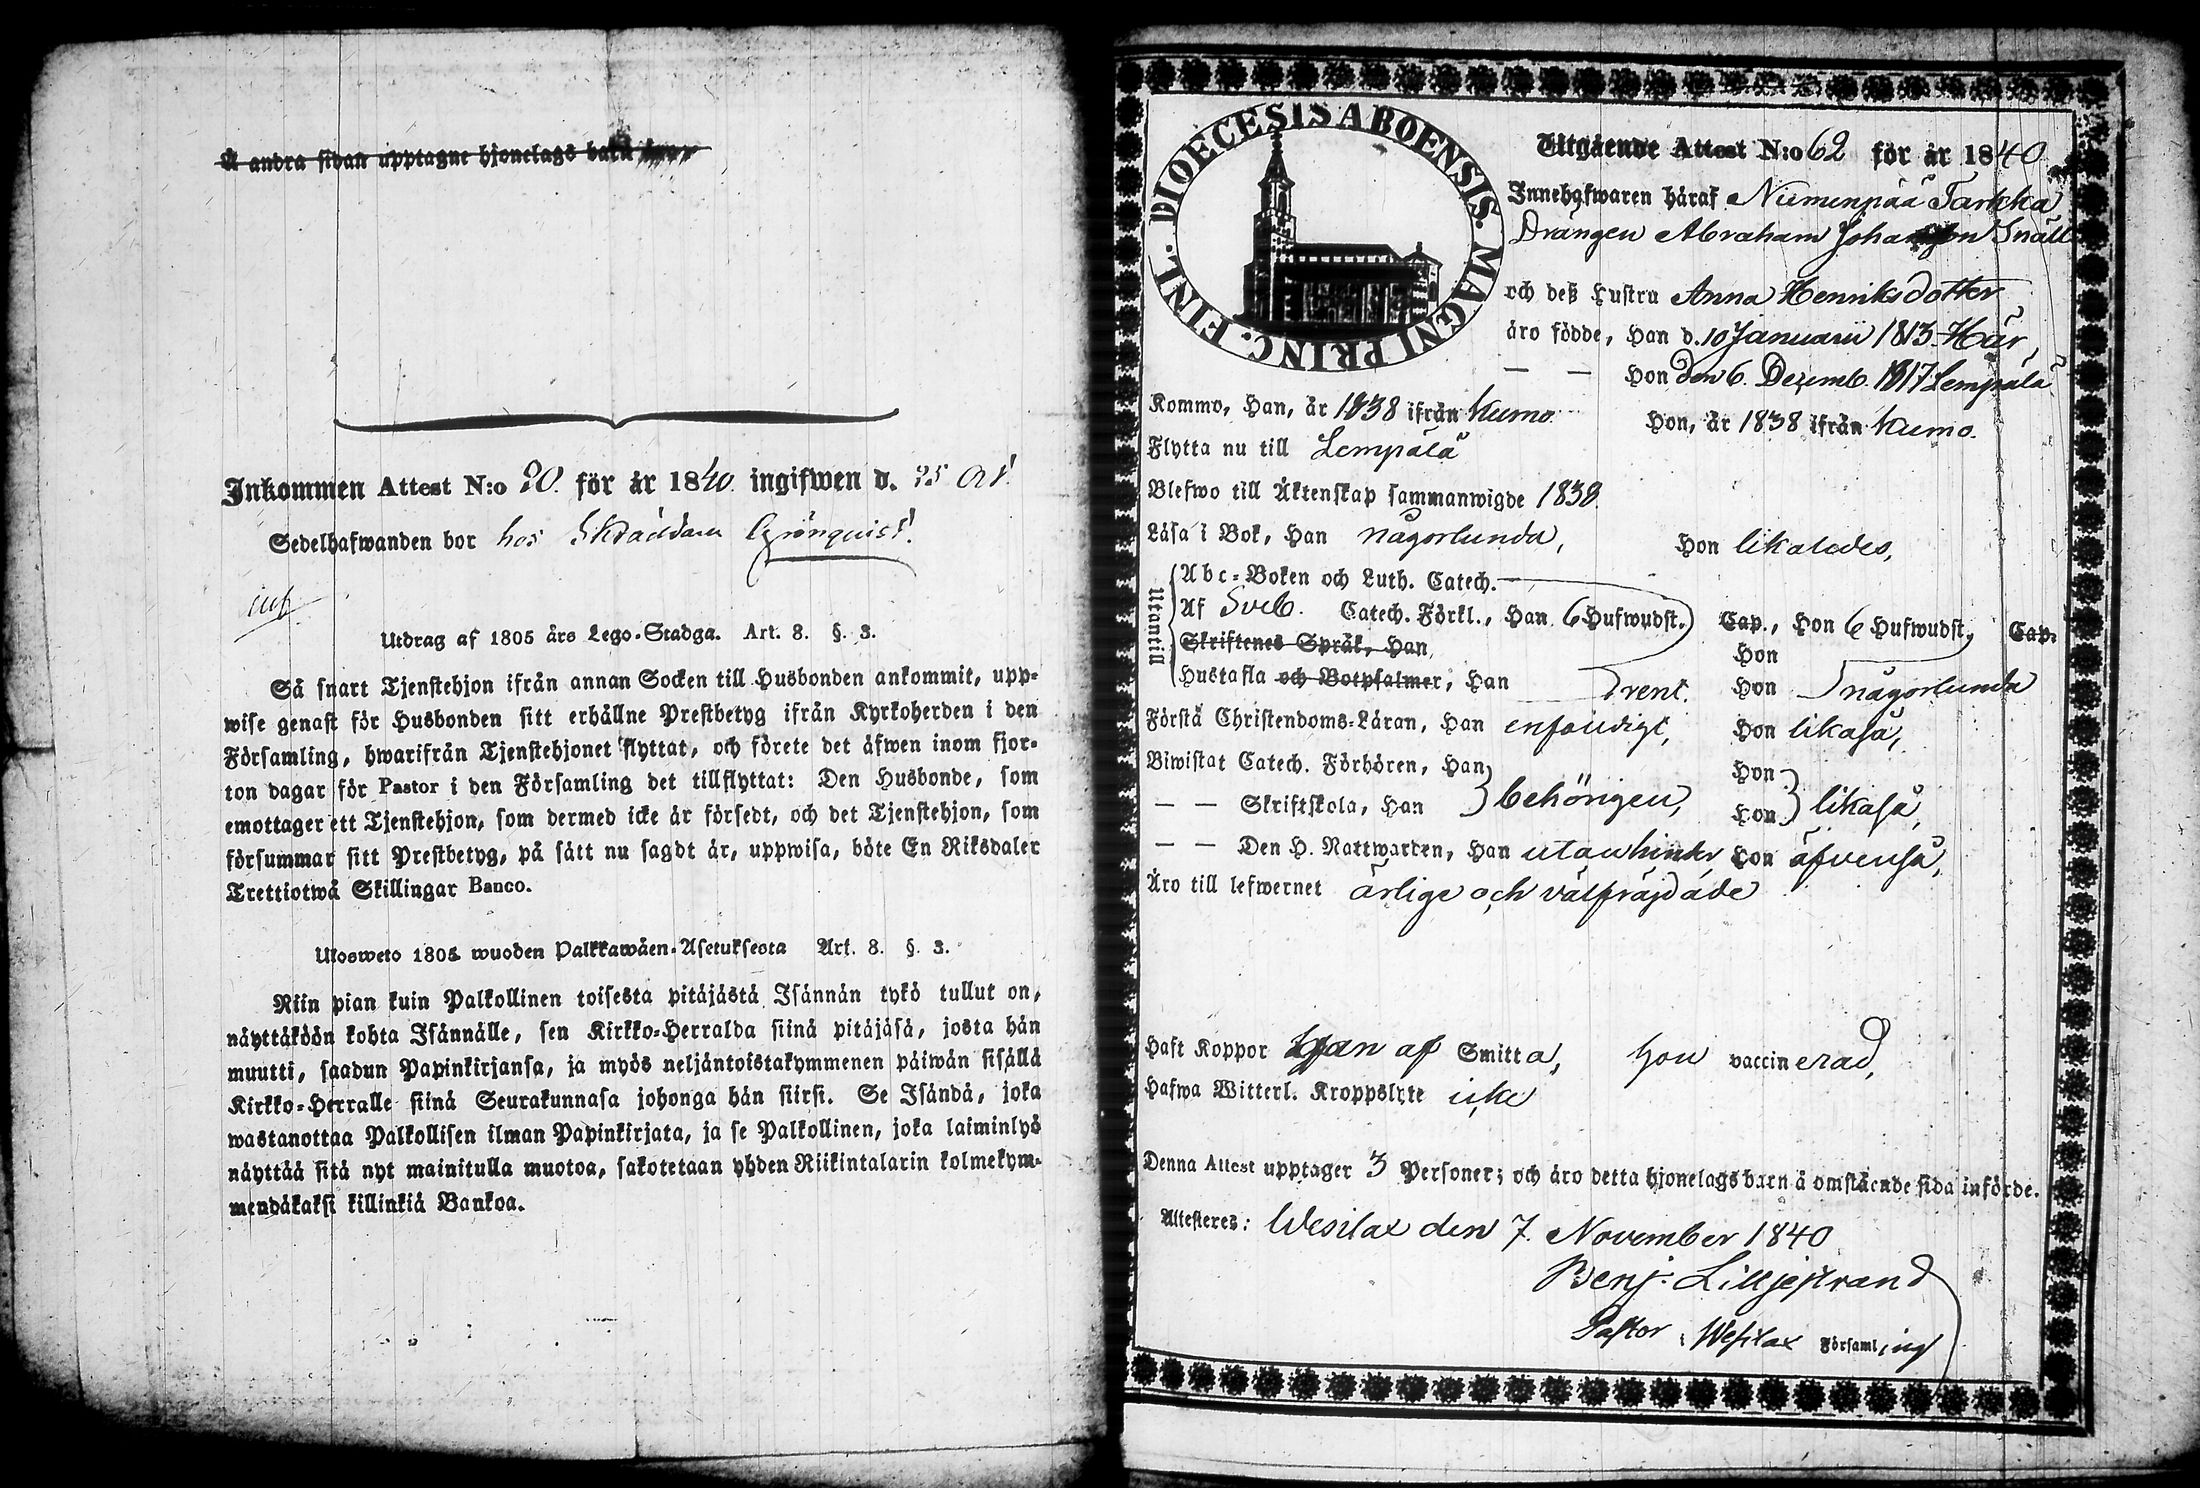 Å andra sidan upptagne hjonelags barn äro
Inkommen Attest N:o 20. för år 1840. ingifwen d. 25 Oct
Sedelhafwanden bor hos Skräddaren Grönquist.
Utdrag af 1805 års Lego-Stadga. Art. 8. §. 3.
Så snart Tjenstehjon ifrån annan Socken till Husbonden ankommit, upp-
wise genast för Husbonden sitt erhållne Prestbetyg ifrån Kyrkoherden i den
Församling, hwarifrån Tjenstehjonet flyttat, och förete det äfwen inom fjor-
ton dagar för Pastor i den Församling det tillflyttat: Den Husbonde, som
emottager ett Tjenstehjon, som dermed icke är försedt, och det Tjenstehjon, som
försummar sitt Prestbetyg, på sätt nu sagdt är, uppwisa, böte En Riksdaler
Trettiotwå Skillingar Banco.
Ulosweto 1805 wuoden Palkkawäen-Asetuksesta Art. 8. §. 3.
Niin pian kuin Palkollinen toisesta pitäjästä Isännän tykö tullut on,
näyttäköön kohta Isännälle, sen Kirkko-Herralda siinä pitäjäsä, josta hän
muutti, saadun Papinkirjansa, ja myös neljäntoistakymmenen päiwän sisällä
Kirkko-Herralle siinä Seurakunnasa johonga hän siirsi. Se Isändä, joka
wastanottaa Palkollisen ilman Papinkirjata, ja se Palkollinen, joka laiminlyö
näyttää sitä nyt mainitulla muotoa, sakotetaan yhden Riikintalarin kolmekym-
mendäkaksi killinkiä Bankoa.
DIOECESIS ABOENSIS. MAGNI PRINC. FINL.
Utgående Attest N:o 62 för år 1840
Innehafwaren häraf Niemenpää Tarkka
Drängen Abraham Johansson Snäll
och deß Hustru Anna Henriksdotter
äro födde, Han d. 10 Januarii 1813 Här,
— — Hon den 6. Decemb. 1817 Lempälä
Kommo, Han, år 1838 ifrån Kumo Hon, år 1838 ifrån Kumo.
Flytta nu till Lempälä
Blefwo till Äktenskap sammanwigde 1838.
Läsa i Bok, Han någorlunda, Hon likaledes,
Utantill
Abc-Boken och Luth. Catech.
Af Sveb. Catech. Förkl., Han 6 Hufwudst. Cap., Hon 6 Hufwudst, Cap.
Skriftenes Språk, Han Hon
Hustafla och Botpsalmer, Han rent. Hon någorlunda
Förstå Christendoms-Läran, Han enfaldigt, Hon likaså,
Biwistat Catech. Förhören, Han Hon
— — Skriftskola, Han behörigen, Hon likaså,
— — Den H. Nattwarden, Han utan hinder, Hon äfvenså,
Äro till lefwernet ärlige och välfräjdade
Haft Koppor Han af Smitta, hon vaccinerad,
Hafwa Witterl. Kroppslyte icke
Denna Attest upptager 3 Personer; och äro detta hjonelags barn å omstående sida införde.
Attesteres: Wesilax den 7. November 1840
Benj. Lilljestrand
Pastor i Wesilax Församling